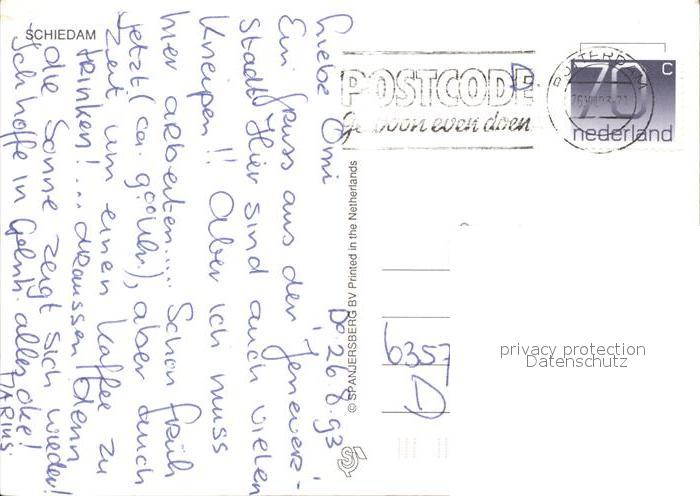 SCHIEDAM
Liebe Omi
Do 26.8.93
Ein Gruss aus der "Jenever"-
Stadt! Hier sind auch vielen
Kneipen!! Aber ich muss
hier arbeiten.... Schon früh
jetzt (ca. 9°°Uhr), aber auch
Zeit um einen Kaffee zu
trinken!... draussen denn
die Sonne zeigt sich wieder!
Ich hoffe in Gelnh. alles oke!
MARIUS
© SPANJERSBERG BV Printed in the Netherlands
POSTCODE
Gewoon even doen
ROTTERDAM
70
C
nederland
6357
D
privacy protection
Datenschutz